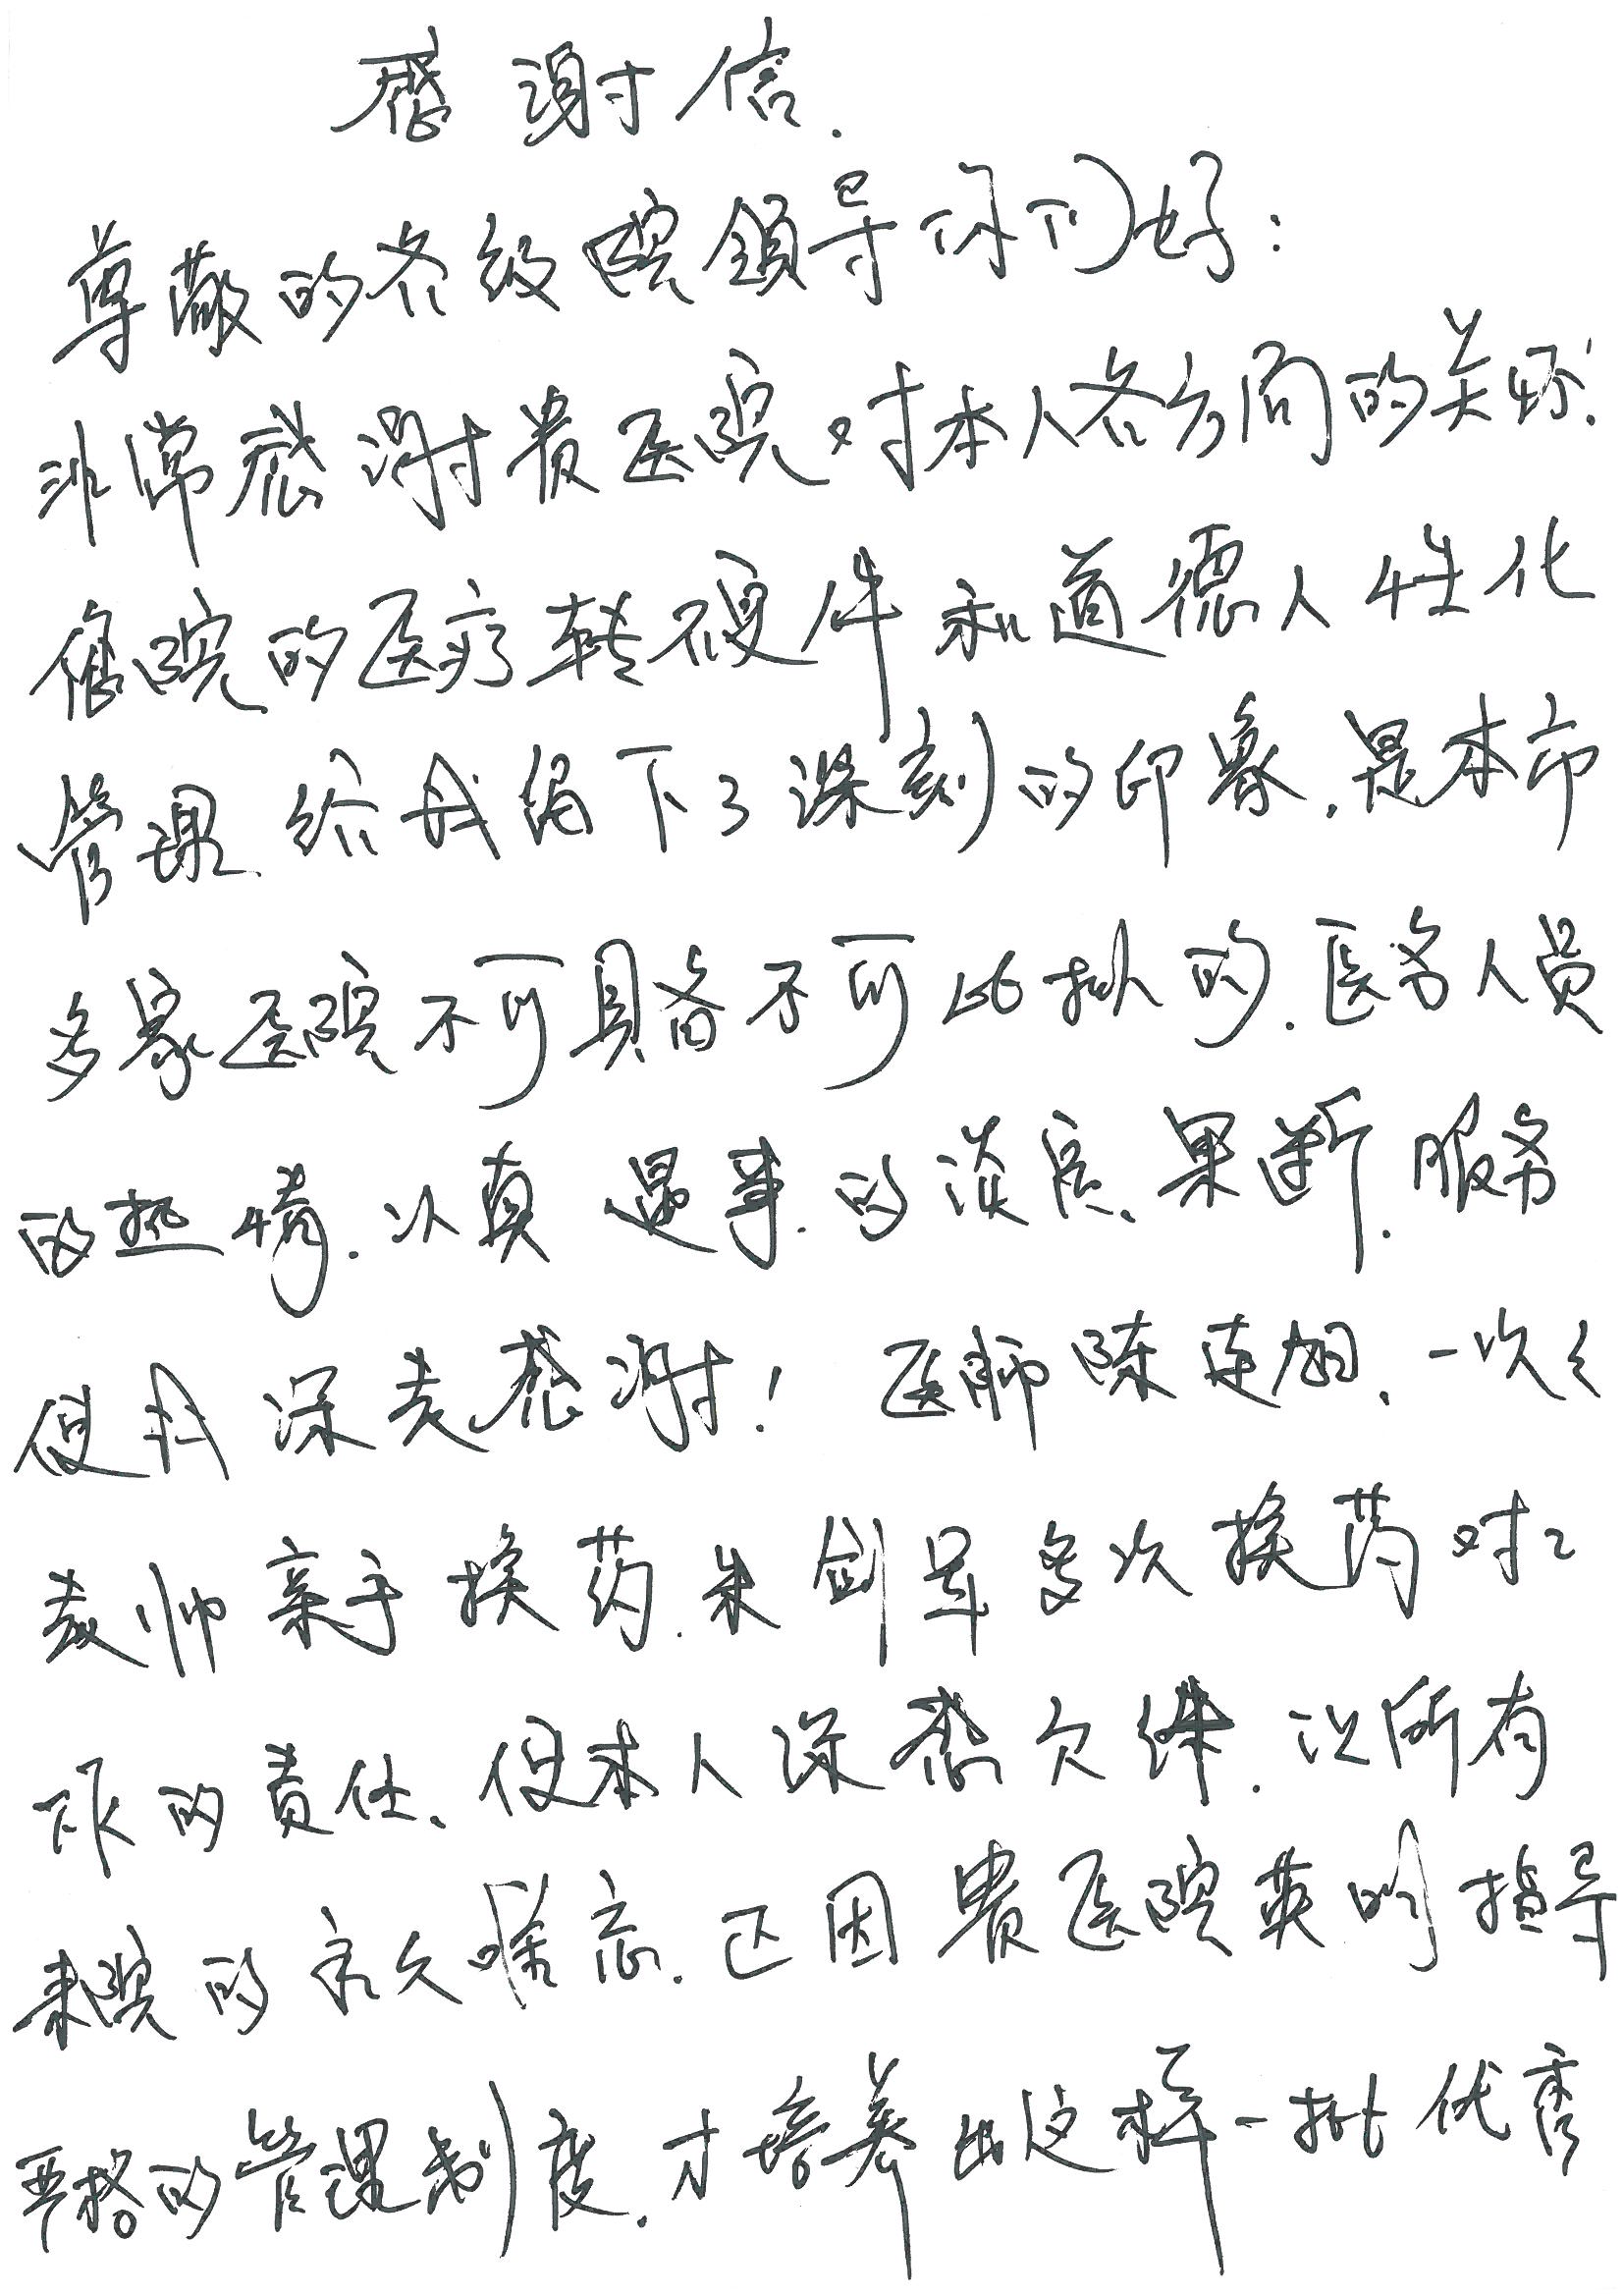 感谢信.
尊敬的各级院领导你们好:
非常感谢贵医院对本人各方面的关怀.
住院的医疗软硬件和道德人性化
管理.给我留下了深刻的印象.是本市
多家医院不可具备不可比拟的.医务人员
的热情.认真 遇事.的淡定、果断.服务
使我深表感谢! 医师陈连旭、一次次
亲手换药.朱剑 多次换药对工
作的责任、使本人深感欠缺.让所有
来院的永久难忘.正因贵医院英明指导
严格的管理制度.才培养出这样一批优秀